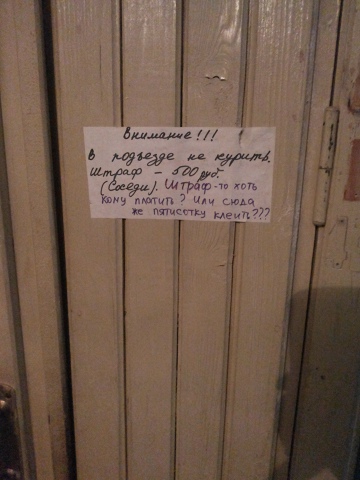 Внимание!!!
В подъезде не курить.
Штраф - 500 руб.
(Соседи). Штраф-то хоть
кому платить? Или сюда
же пятисотку клеить???